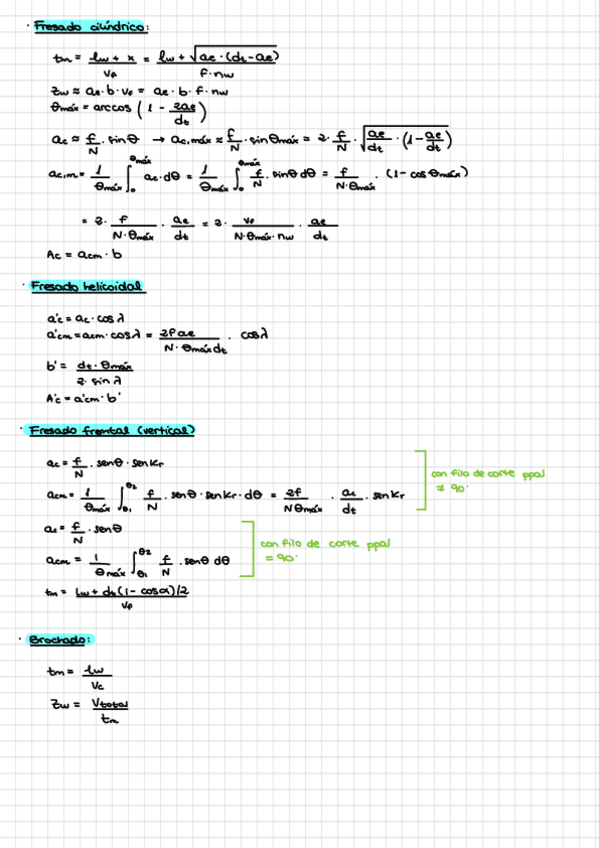 · Fresado cilíndrico:
tm = (lw + x) / Vf = (lw + √(ae · (dt - ae))) / (f · nw)
Zw ≈ ae · b · vf = ae · b · f · nw
θmáx = arccos (1 - 2ae/dt)
ac ≈ f/N · sinθ → ac,máx ≈ f/N · sinθmáx = 2 · f/N · √(ae/dt · (1 - ae/dt))
ac,m = 1/θmáx ∫₀^θmáx ac · dθ = 1/θmáx ∫₀^θmáx f/N · sinθ dθ = f/(N · θmáx) · (1 - cosθmáx)
= 2 · f/(N · θmáx) · ae/dt = 2 · vf/(N · θmáx · nw) · ae/dt
Ac = acm · b
· Fresado helicoidal
a'c = ac · cosλ
a'cm = acm · cosλ = 2f ae/(N · θmáx dt) · cosλ
b' = (dt · θmáx)/(2 · sinλ)
A'c = a'cm · b'
· Fresado frontal (vertical)
ac = f/N · senθ · senkr
acm = 1/θmáx ∫θ1^θ2 f/N · senθ · senkr · dθ = 2f/(Nθmáx) · ae/dt · senkr
con filo de corte ppal
≠ 90°
ac = f/N · senθ
acm = 1/θmáx ∫θ1^θ2 f/N · senθ dθ
con filo de corte ppal
= 90°
tm = (lw + dt (1 - cosα)/2) / Vf
· Brochado:
tm = lw / Vc
Zw = Vtotal / tm